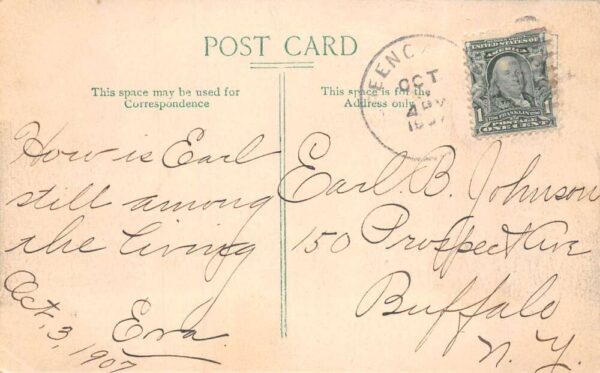 POST CARD
This space may be used for
Correspondence
This space is for the
Address only
EENCA
OCT
4
1907
UNITED STATES OF
AMERICA
1
1
FRANKLIN
POSTAGE
ONE CENT
How is Earl
still among
the living
Era
Oct. 3, 1907
Earl. B. Johnson
150 Prospect Ave
Buffalo
N. Y.